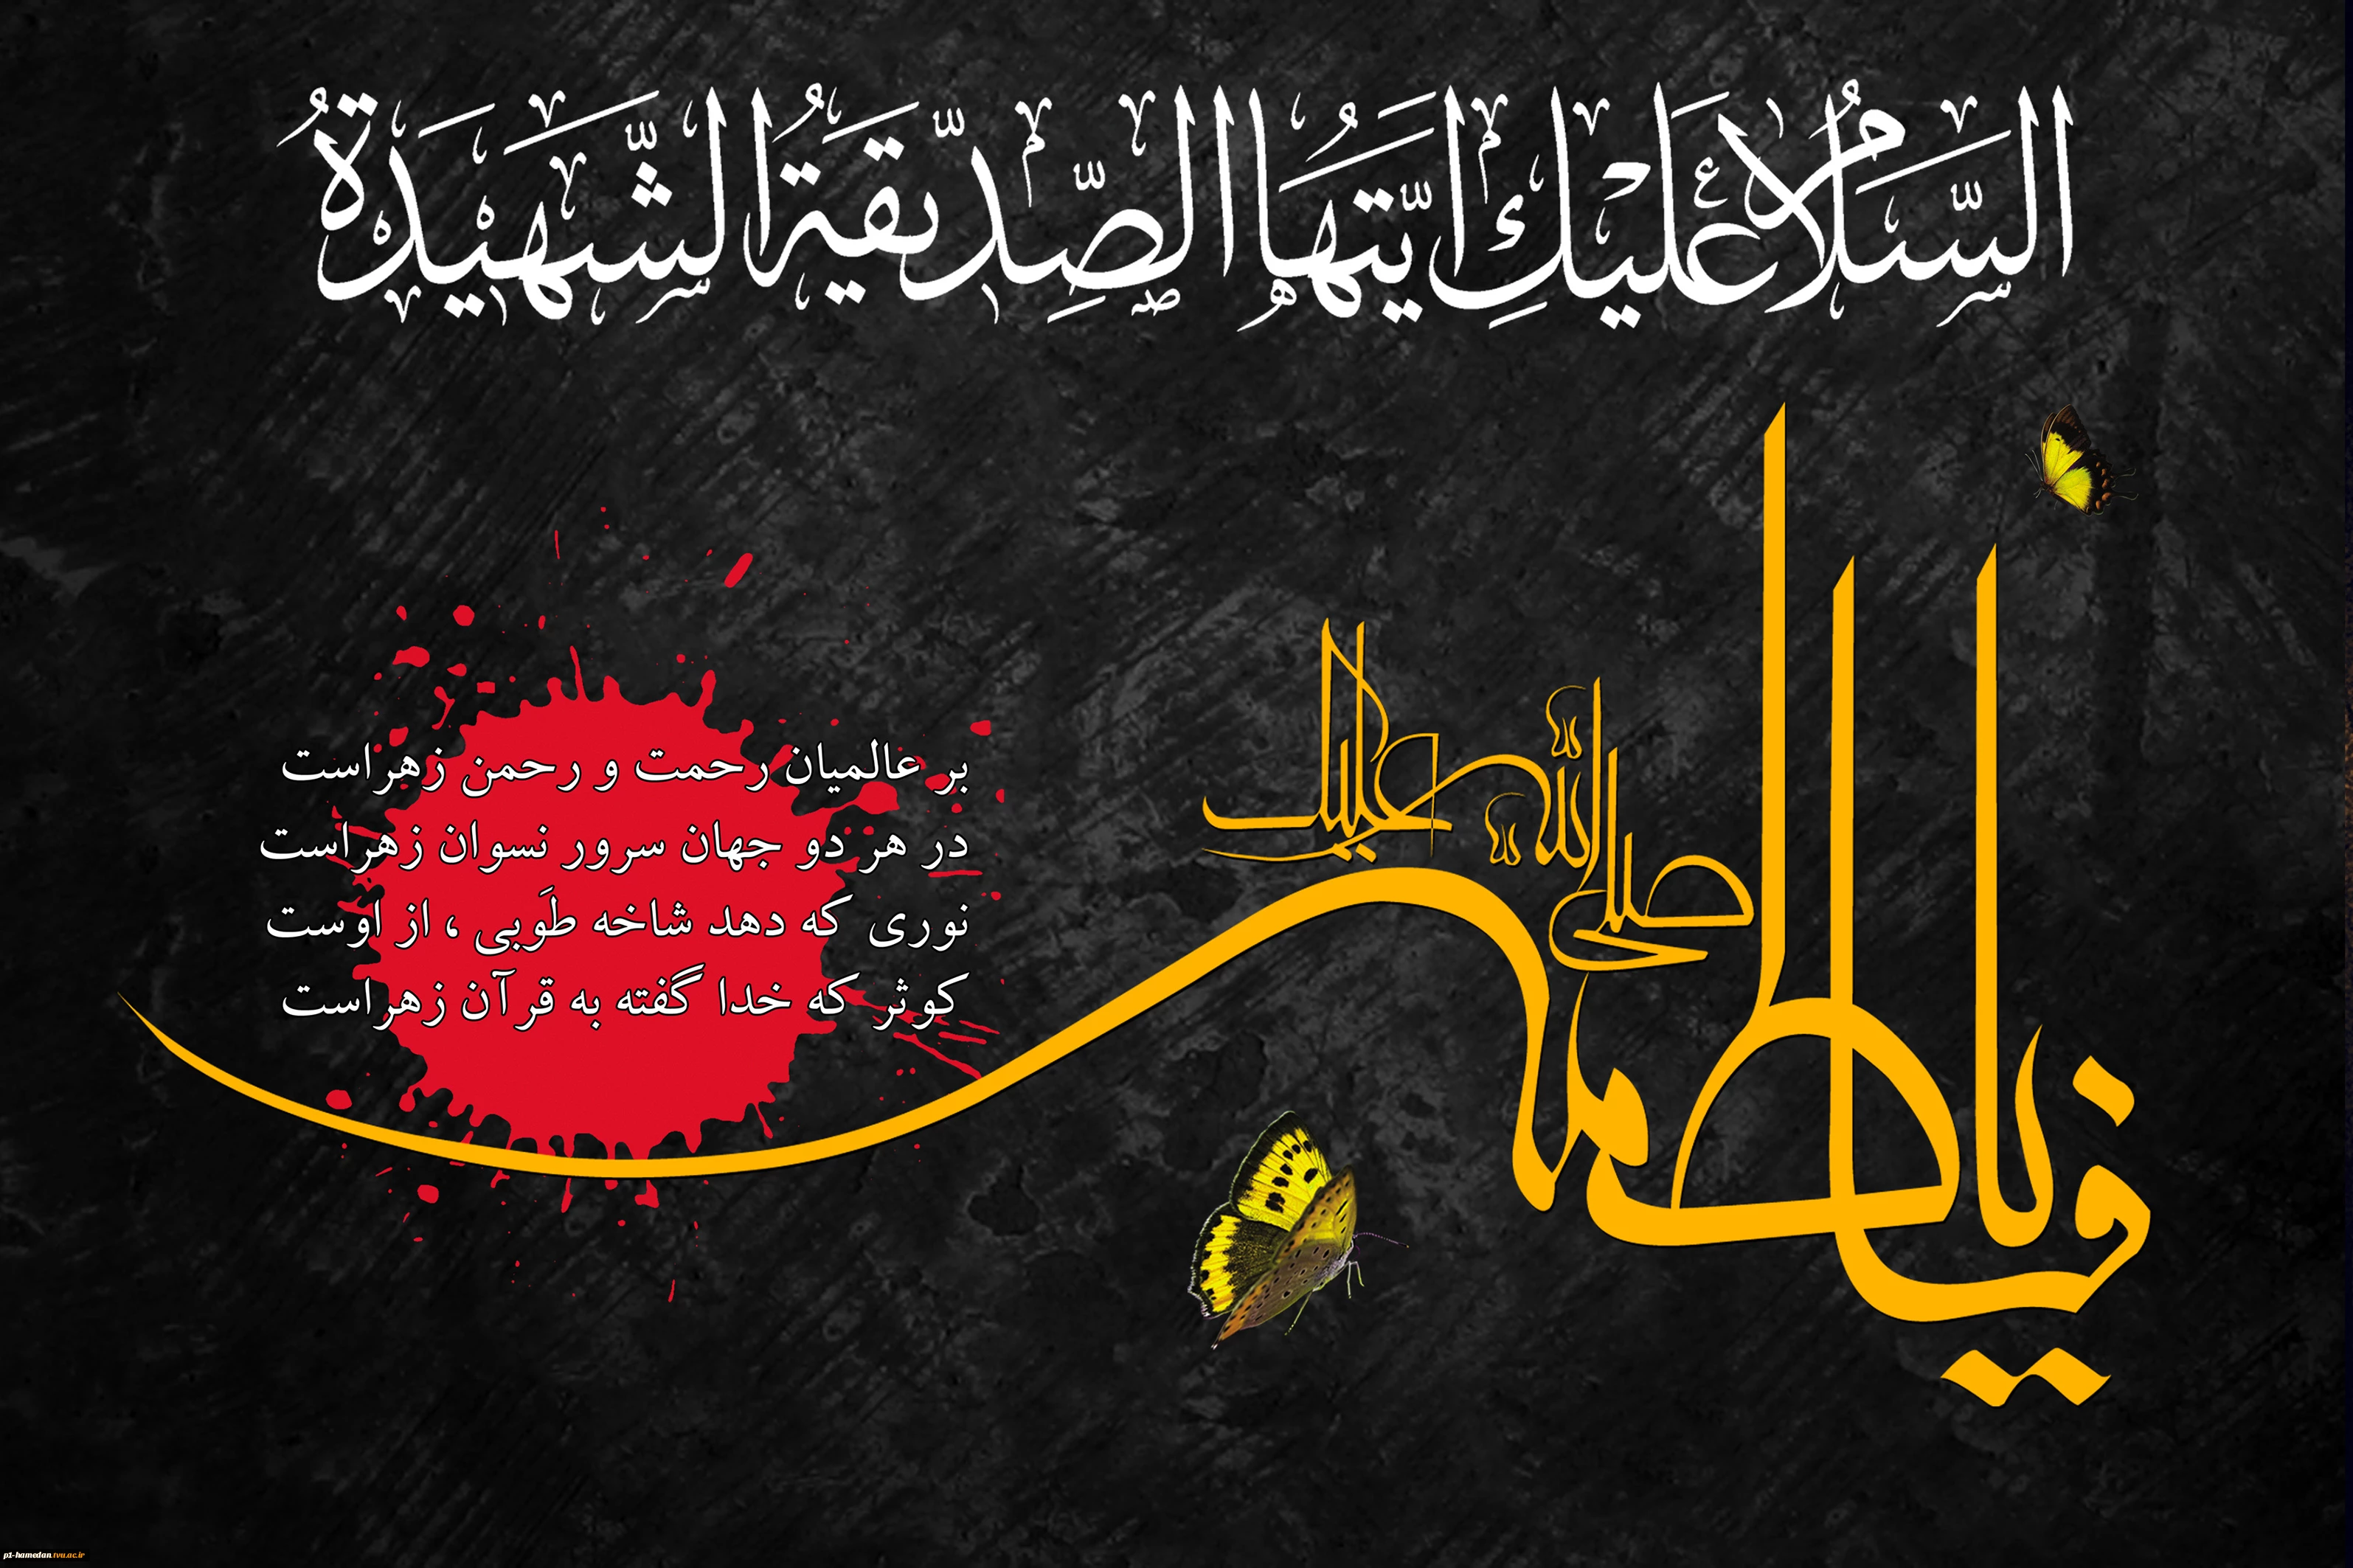 السَّلَامُ عَلَيْكِ ايَّتُهَا الصِّدّيقَةُ الشَّهيْدَةُ
يا فاطمه
صلی الله علیک
بر عالمیان رحمت و رحمن زهراست
در هر دو جهان سرور نسوان زهراست
نوری که دهد شاخه طَوبی ، از اوست
کوثر که خدا گفته به قرآن زهراست
p1-hamedan.tvu.ac.ir